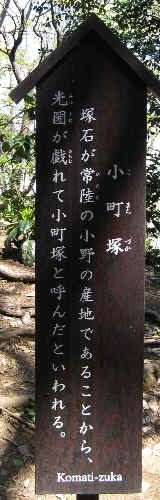 小町塚
塚石が常陸の小野の産地であることから、
光圀が戯れて小町塚と呼んだといわれる。
Komati-zuka